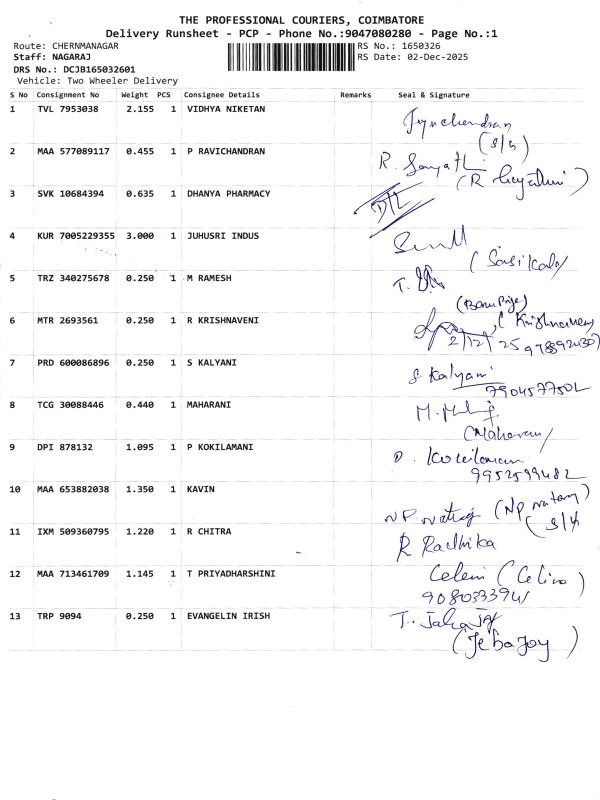 THE PROFESSIONAL COURIERS, COIMBATORE
Delivery Runsheet - PCP - Phone No.:9047080280 - Page No.:1
Route: CHERNMANAGAR RS No.: 1650326
Staff: NAGARAJ RS Date: 02-Dec-2025
DRS No.: DCJB165032601
Vehicle: Two Wheeler Delivery
S No Consignment No Weight PCS Consignee Details Remarks Seal & Signature
1 TVL 7953038 2.155 1 VIDHYA NIKETAN
2 MAA 577089117 0.455 1 P RAVICHANDRAN R.
3 SVK 10684394 0.635 1 DHANYA PHARMACY
4 KUR 7005229355 3.000 1 JUHUSRI INDUS
(Sasikala)
5 TRZ 340275678 0.250 1 M RAMESH T.
6 MTR 2693561 0.250 1 R KRISHNAVENI
2/12/25
7 PRD 600086896 0.250 1 S KALYANI S Kalyani
8 TCG 30088446 0.440 1 MAHARANI
(Maharani)
9 DPI 878132 1.095 1 P KOKILAMANI
9952599482
10 MAA 653882038 1.350 1 KAVIN
11 IXM 509360795 1.220 1 R CHITRA R Radhika
12 MAA 713461709 1.145 1 T PRIYADHARSHINI
13 TRP 9094 0.250 1 EVANGELIN IRISH
(Jeba Joy)